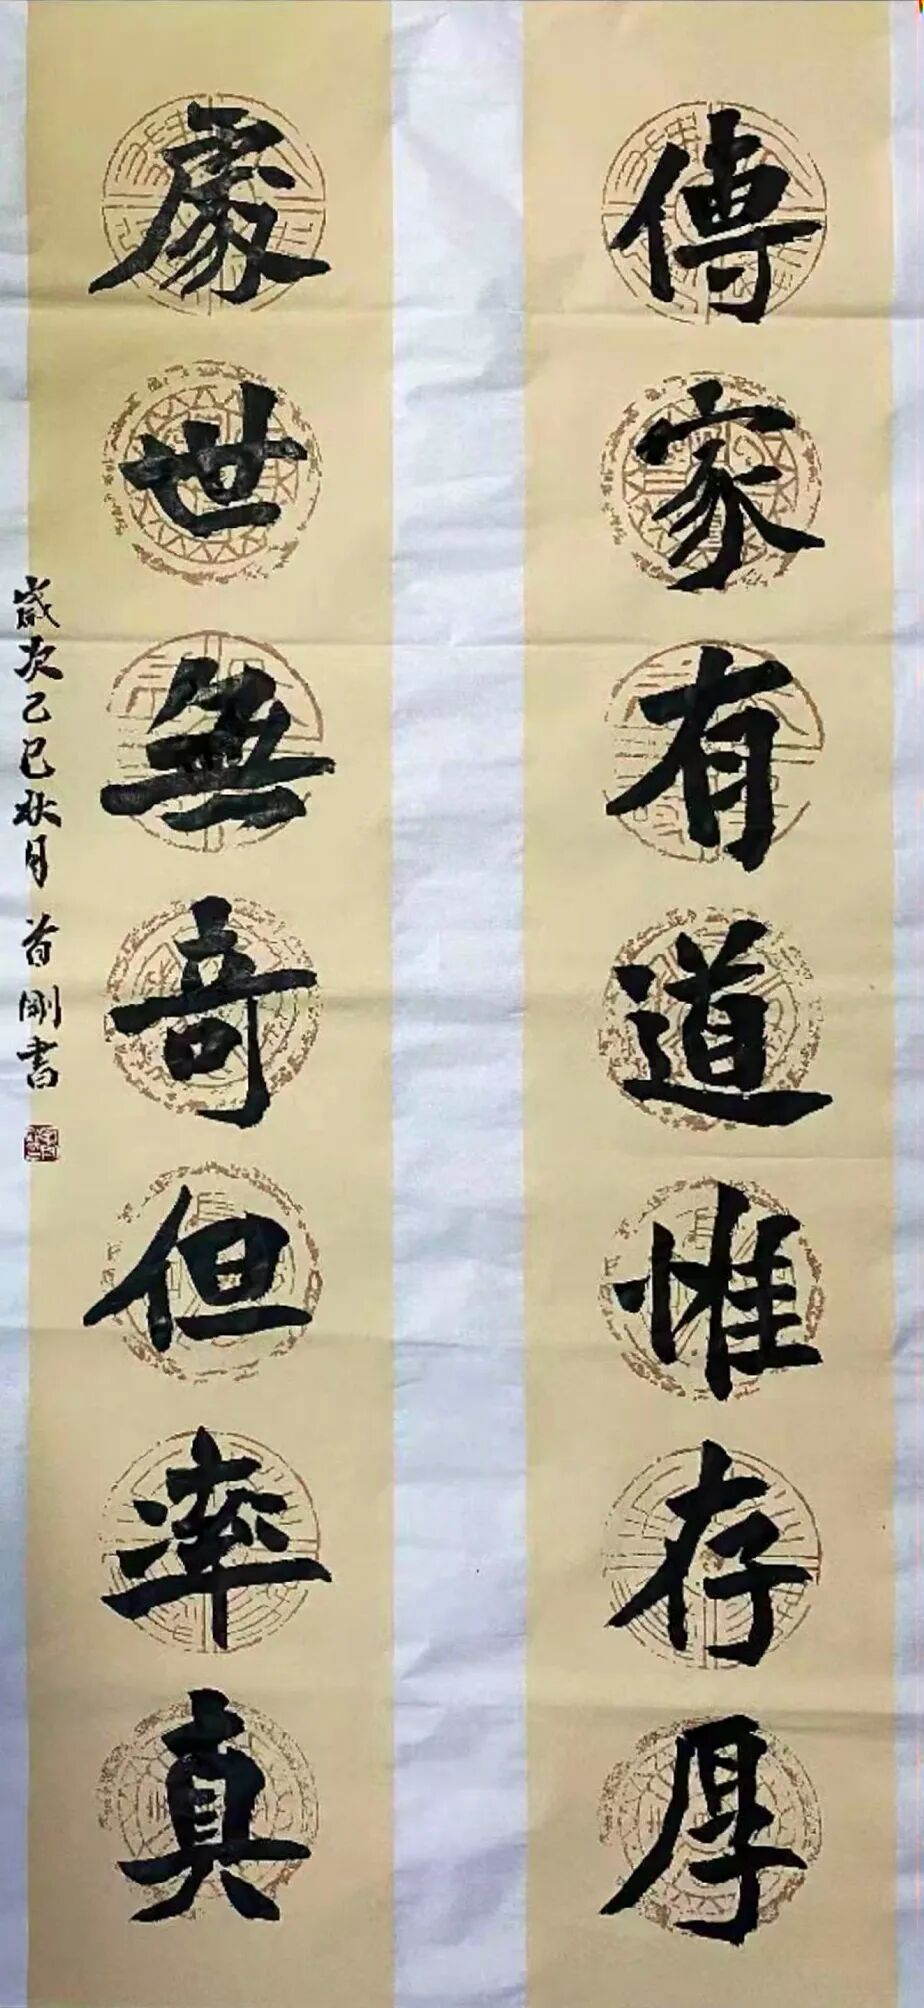 傳家有道惟存厚
處世無奇但率真
歲次乙巳秋月 首剛書